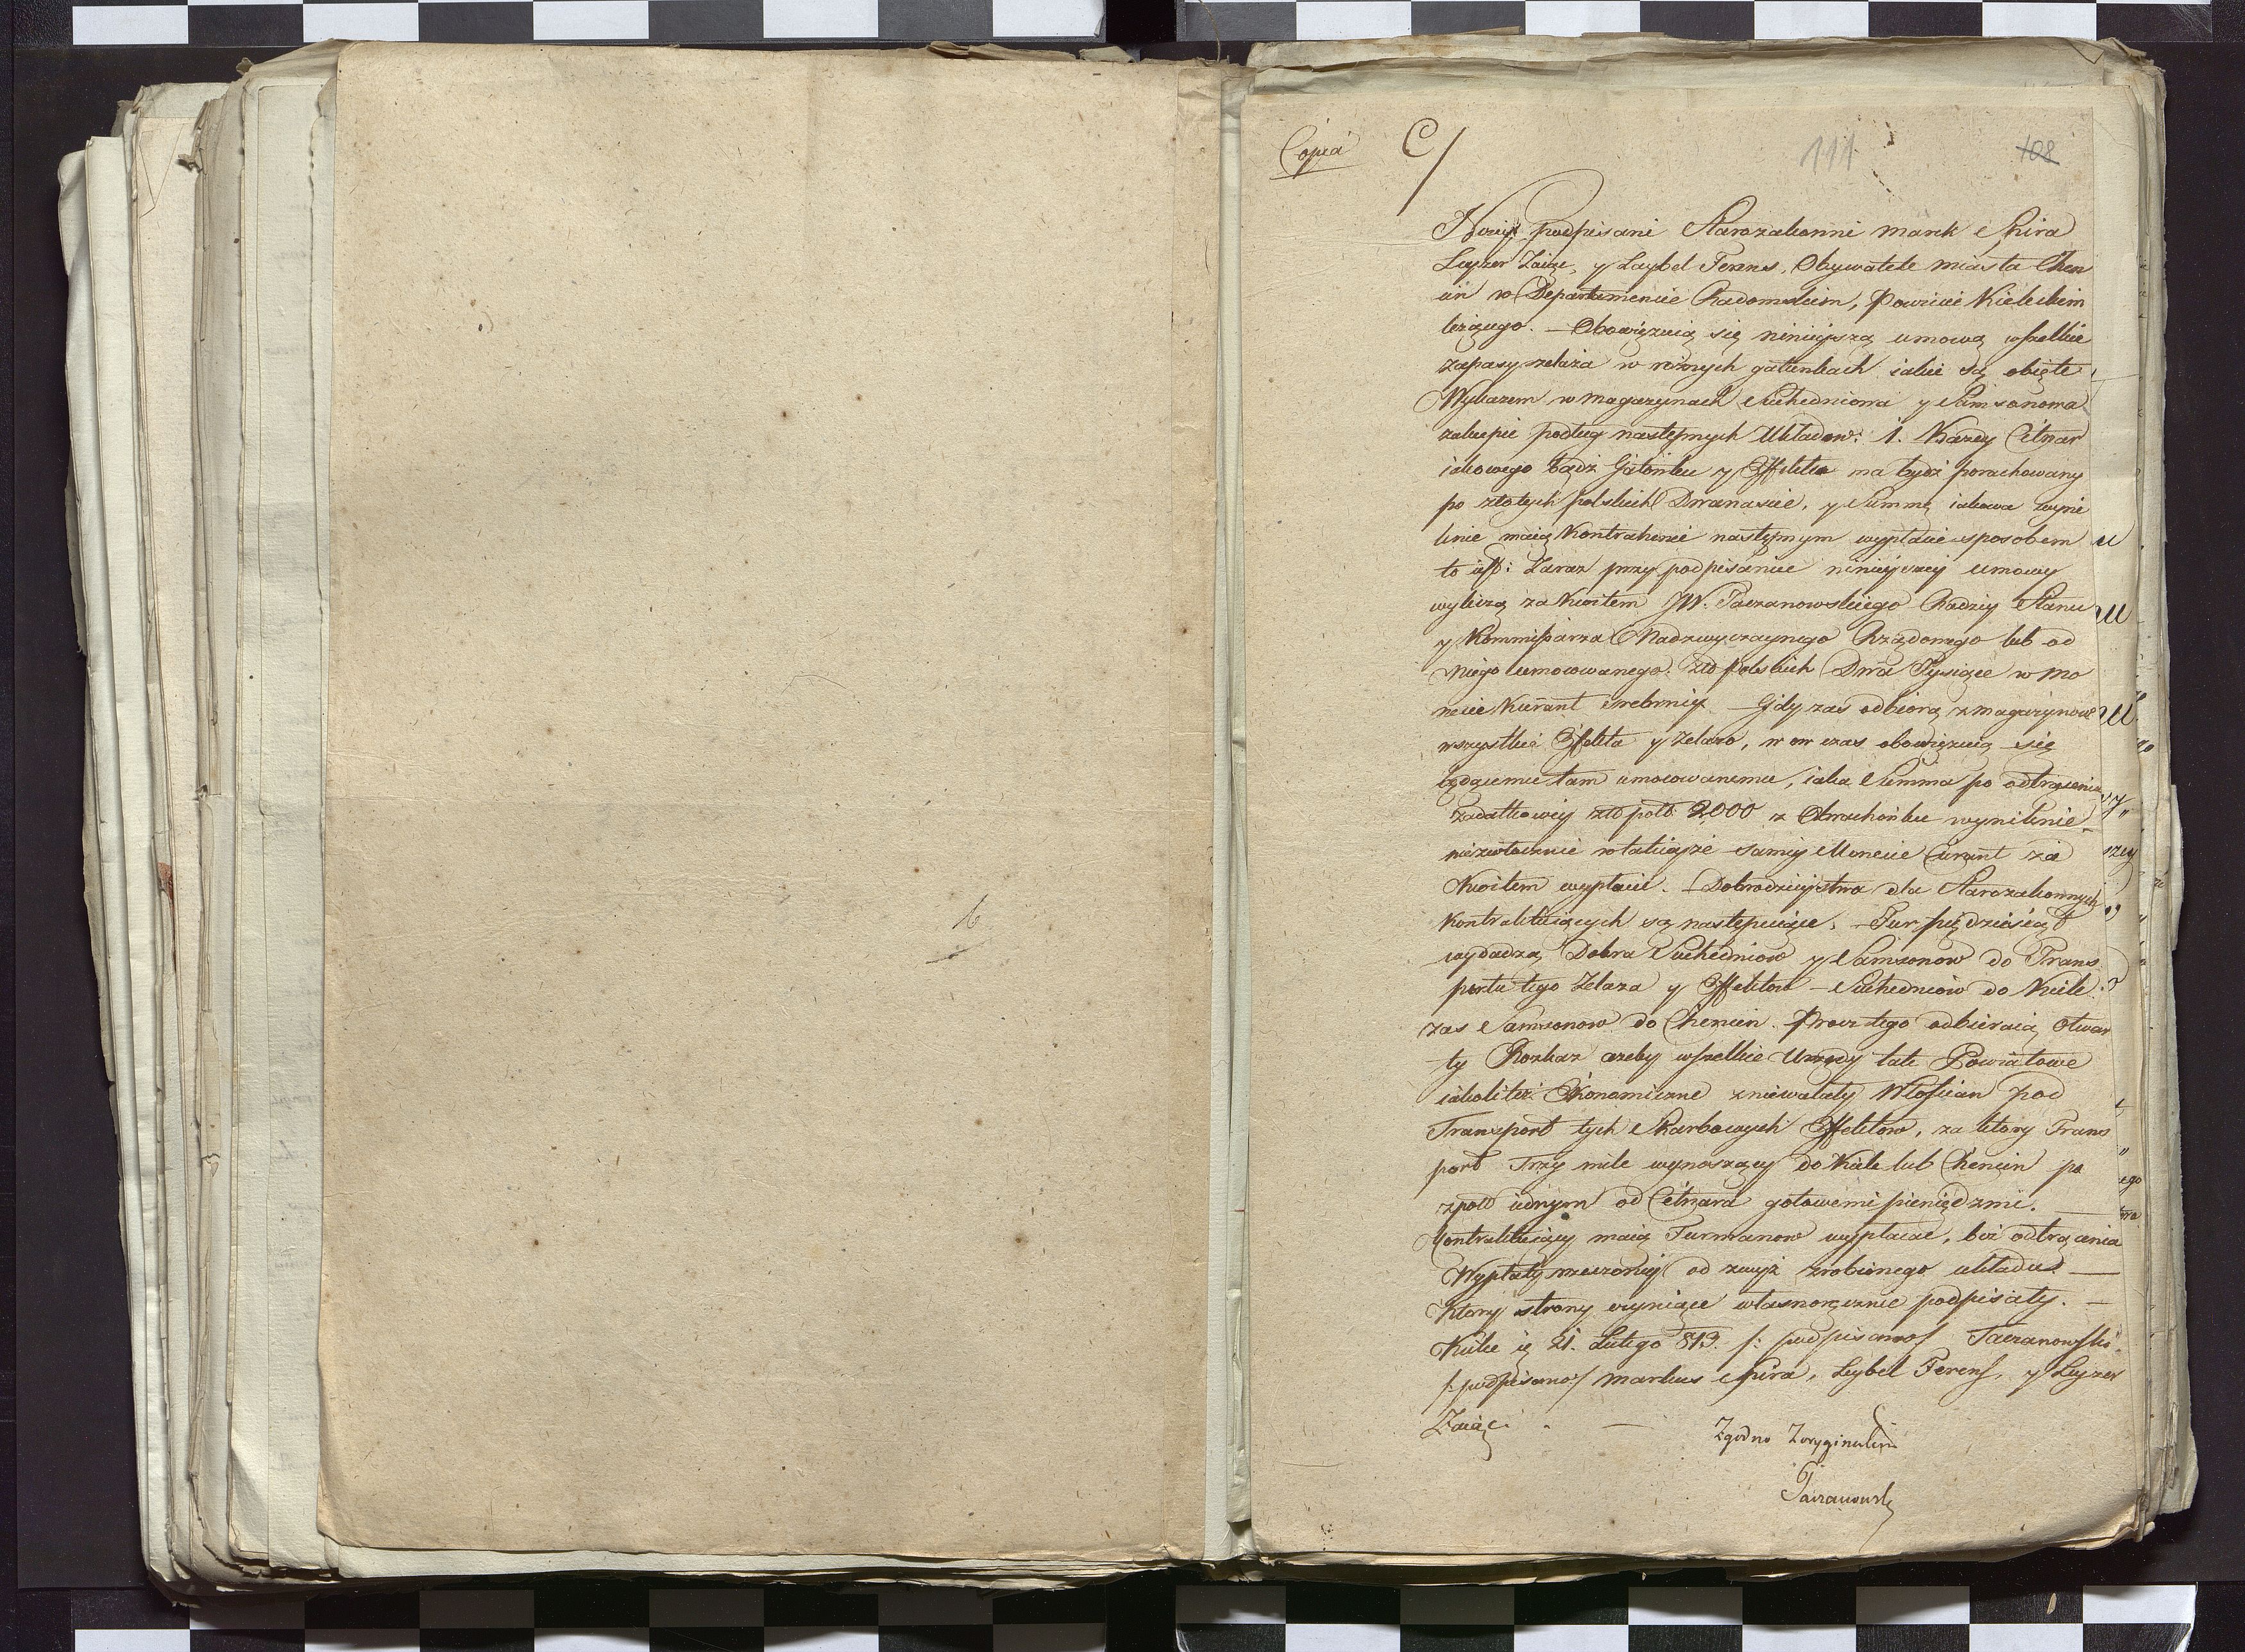 Copia C/ 111 108
Nizey podpisani Starozakonni Marek Spira
Leyzer Zaiąc, y Laybel Ferens, Obywatele miasta Chen
cin w Departamencie Radomskim, Powiecie Kieleckim
leżącego. – Obowięzuią się ninieyszą umową wszelkie
zapasy żelaza w rożnych gatunkach iakie są obięte
Wykazem w magazynach Suchedniowa y Samsonowa
zakupić podług następnych Układow: 1. Kazdy Cetnar
iakowego bądź Gatonku y Effektu ma bydź porachowany
po złotych polskich Dwanaście, y Summę iakowa wyni
knie maią Kontrahenci następnym wypłacić sposobem
to iest: Zaraz przy podpisaniu ninieyszey umowy
wyliczą za kwitem JW. Taczanowskiego Radzcy Stanu
y Kommissarza Nadzwyczaynego Rządowego lub od
niego umocowanego. złto polskich Dwa Tysiące w mo
necie Kurant srebrney – Gdy zas odbiorą z magazynow
wszystkie Effekta y żelazo, w ow czas obowięzuią się
będącemu tam umocowanemu, iaka Summa po odtrąceniu
Zadatkowey złto pols 2000 z Obrachonku wyniknie
niezwłocznie w takieyże samey Monecie Curant za
Kwitem wypłacić. – Dobrodzieystwa dla Starozakonnych
Kontraktuiących są następuiące. – Fur pięćdziesiąt
wydadzą Dobra Suchedniow y Samsonow do Trans
portu tego Zelaza y Effektow – Suchedniow do Kielc
zas Samsonow do Chencin. Procz tego odbieraią otwar
ty Rozkaz azeby wszelkie Urzędy tak Powiatowe
iakoli też Ekonomiczne zniewalały Włoscian pod
Transport tych Skarbowych Effektow, za ktory Trans
port Trzy mile wynoszący do Kielc lub Chencin po
zpol iednym od Cetnara gotowemi pieniędzmi. —
Kontraktuiący maią Furmanow wypłacać, bez odtrącenia
Wypłaty rzeczoney od zwyż zrobionego układu —
Ktory strony czyniące własnoręcznie podpisały. –
Kielce dź 21. Lutego 813. /: podpisano / Taczanowski
/: podpisano:/ Markus Spira, Leybel Ferens, y Leyzer
Zaiąc. —
Zgodno Zoryginałem
Taczanowski